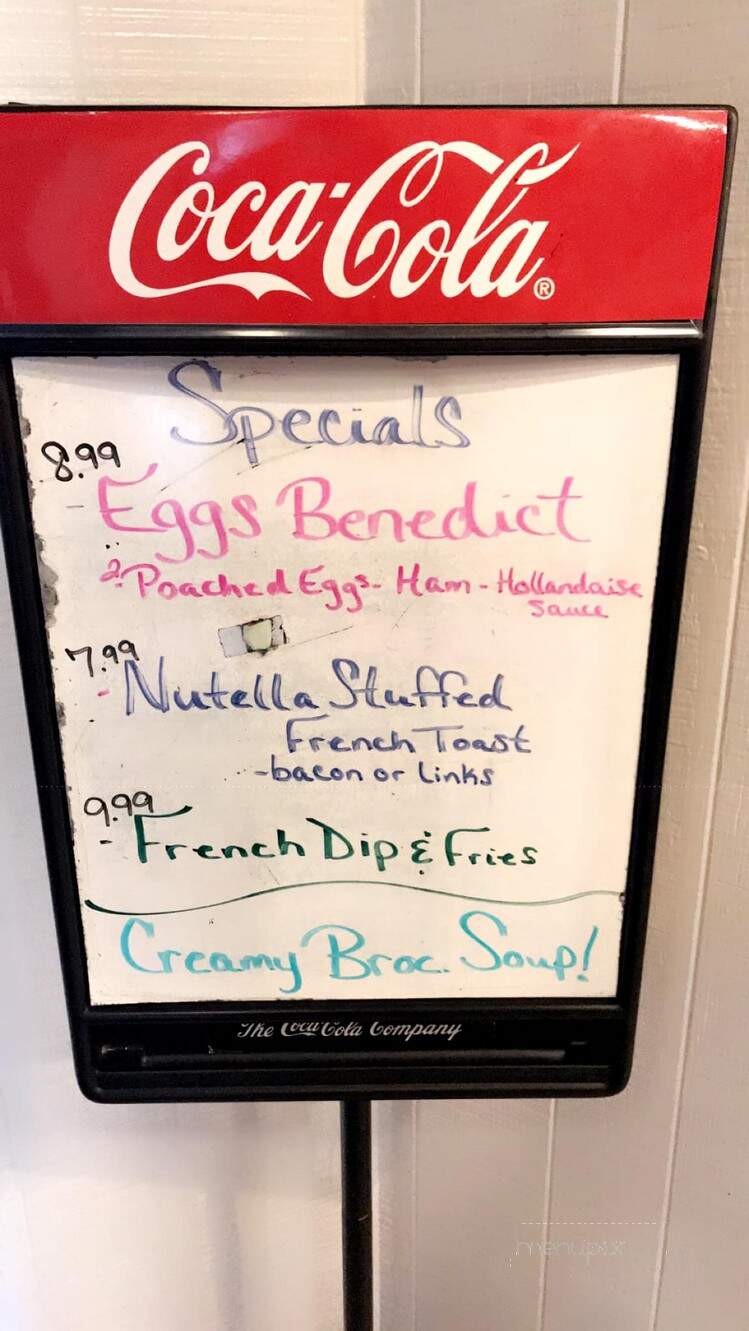 Coca-Cola®
Specials
8.99
- Eggs Benedict
2 Poached Eggs - Ham - Hollandaise
Sauce
7.99
- Nutella Stuffed
French Toast
- bacon or Links
9.99
- French Dip & Fries
Creamy Broc. Soup!
The Coca-Cola Company
menupix